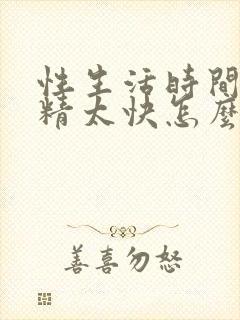 性生活時間
精太快怎麼
善喜勿怒